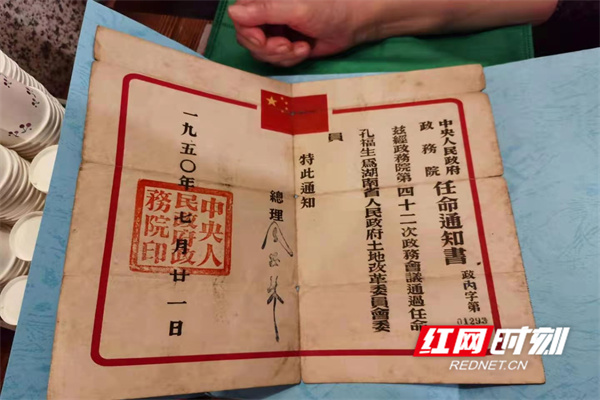 中央人民政府
政務院
任命通知書
政內字第01293
茲經政務院第四十二次政務會議通過任命
孔福生爲湖南省人民政府土地改革委員會委
員
特此通知
總理 周恩來
一九五〇年七月廿一日
中央人
民政府政
務院印
红网时刻
REDNET.CN